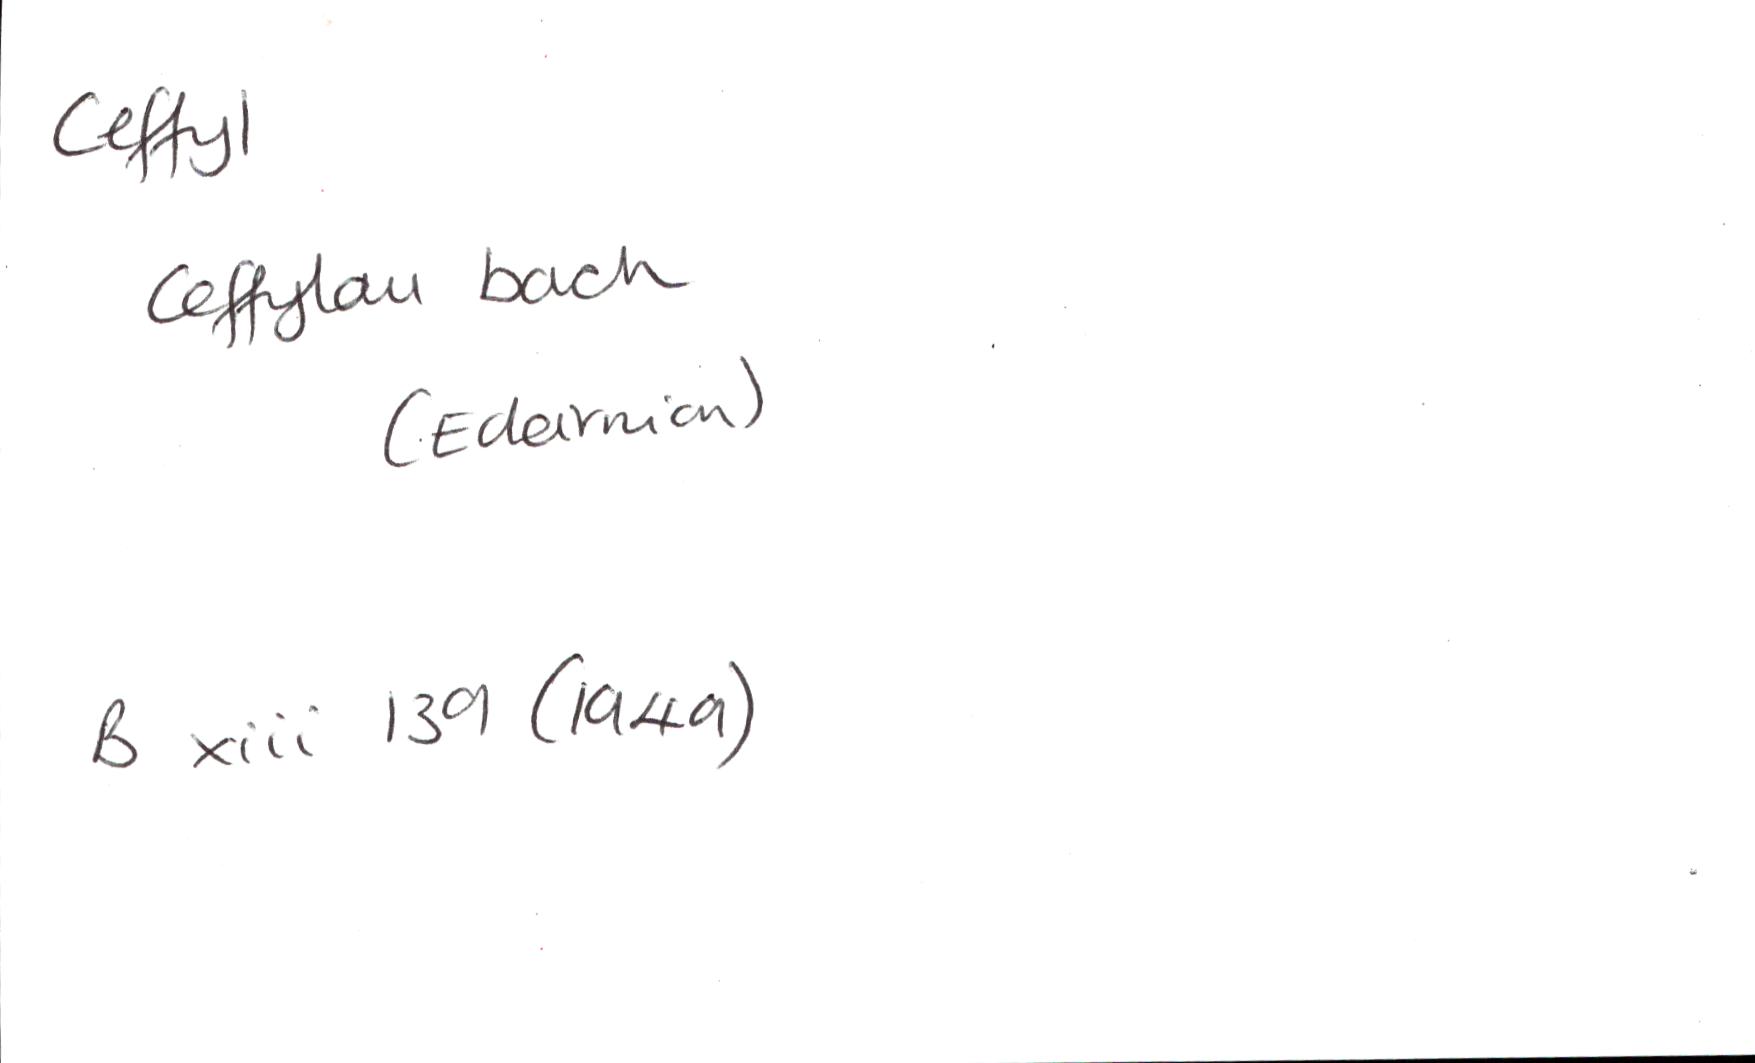 Ceffyl
Ceffylau bach
(Edeirnion)
B xiii 139 (1949)